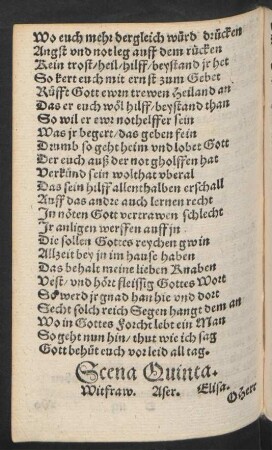 Wo euch meht dergleich würd drücken
Angst vnd not leg auff dem rücken
Kein trost/heil/hilff/beystand jr het
So kert euch mit ernst zum Gebet
Rüfft Gott ewrn trewen Heiland an
Das er euch wöl hilff/beystand than
So wil er ewr nothelffer sein
Was jr begert/das geben fein
Drumb so geht heim vnd lobet Gott
Der euch auß der not gholffen hat
Verkünd sein wolthat vberal
Das sein hilff allenthalben erschall
Auff das andre auch lernen recht
In nöten Gott vertrawen schlecht
Ir anligen werffen auff jn
Die sollen Gottes reychen gwin
Allzeit bey jn im hause haben
Das behalt meine lieben Knaben
Vest/vnd hört fleissig Gottes Wort
So werd jr gnad han hie vnd dort
Secht solch reich Segen hangt dem an
Wo in Gottes Forcht lebt ein Man
So geht nun hin/thut wie ich sag
Gott behüt euch vor leid all tag.
Scena Quinta.
Witfraw. Aser. Elisa.
O Herr